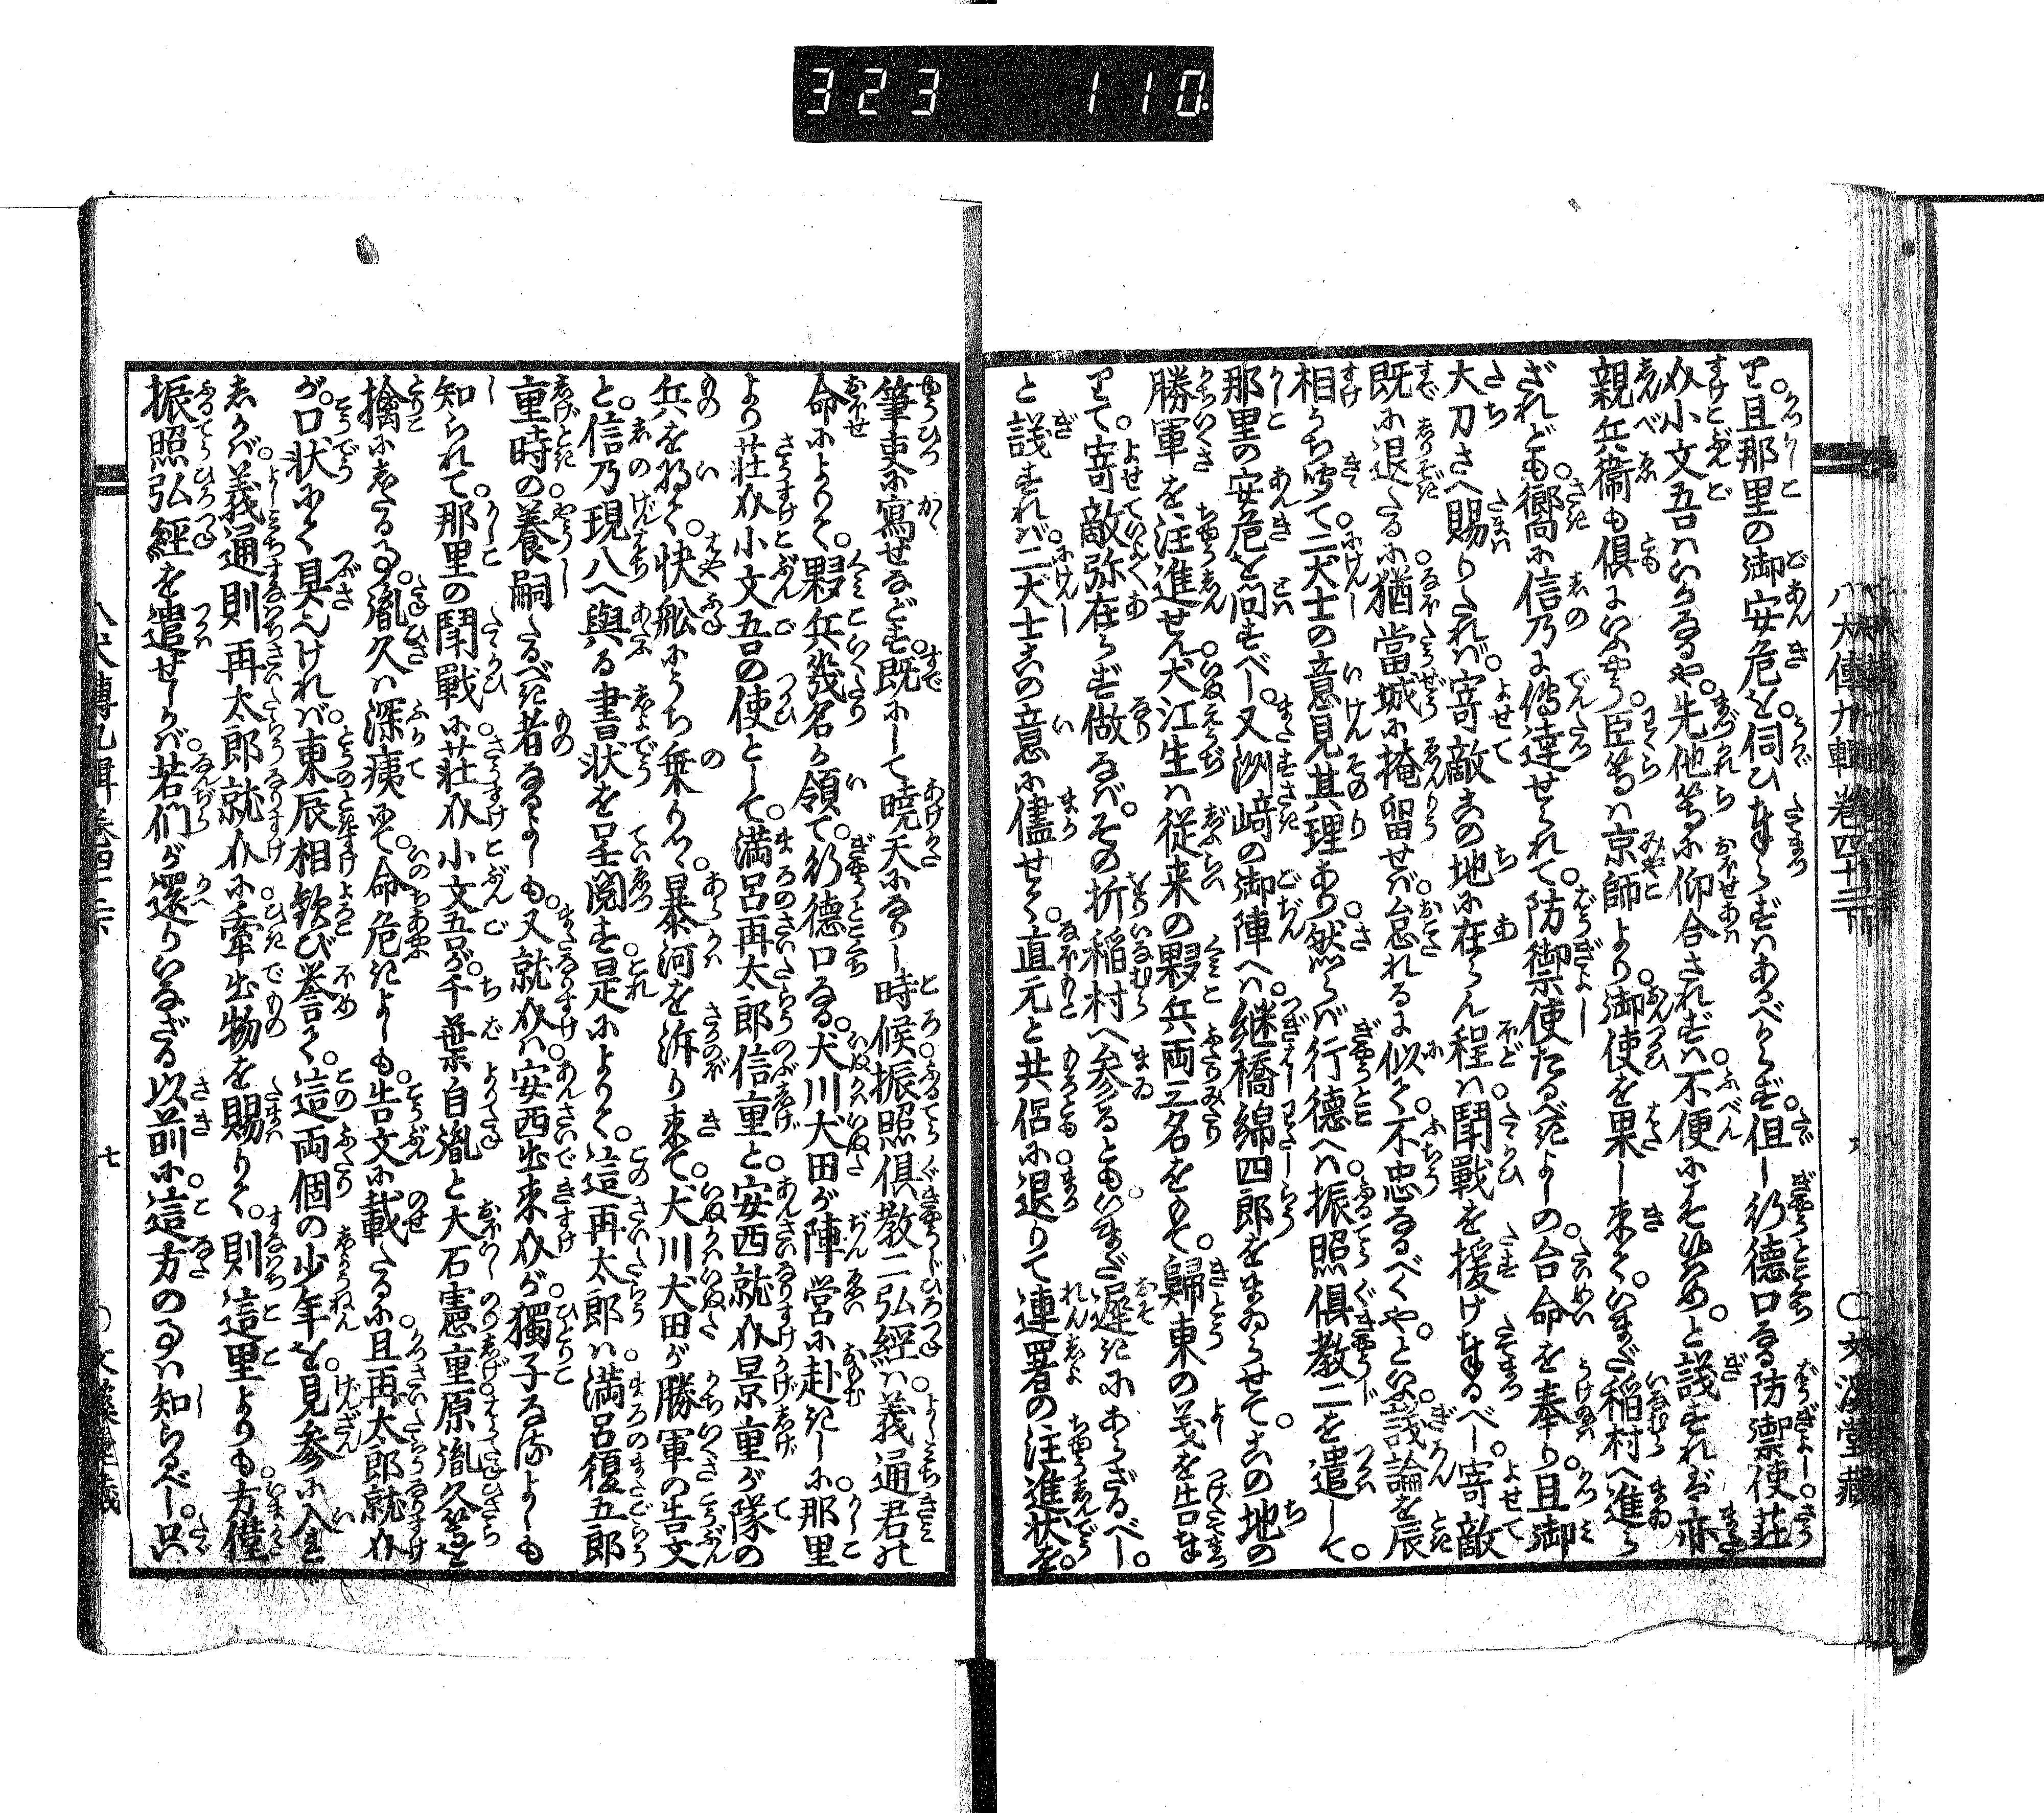 323 110
八犬傳九輯 卷四十二下
○文溪堂藏
て。且那里の御安危を。伺ひまゐらずはあるべからず。但し行徳口なる防禦使莊
介小文吾はいかなるや。先他等に仰合されずは。不便にもやはひなめ。と議すれば。亦
親兵衞も倶にいふやう。臣等は京師より。御使を果し來て。いまだ稲村へ進ら
ざれども。嚮に信乃に傳達せられて。防御禦使たるべきよしの。台命を奉り。且御
大刀さへ賜りたれば。寄敵この地に在らん程は。鬪戰を援け奉るべし。寄敵
既に退きたるに。猶當城に掩留せば。怠れるに似て。不忠なるべくや。といふ議論を辰
相うち听て。二犬士の意見其理あり。然らば行德へは。振照倶教二を遣して。
那里の安危を问すべし。又洲﨑の御陣へは。継橋綿四郎をまゐらせて。この地の
勝軍を注進せん。犬江生は従来の夥兵両三名をもて。歸東の義を告ま
して。寄敵弥在らず做なば。その折稲村へ参るとも。いまだ遲きにあらざるべし。
と議すれば。二犬士この意に儘せて。直元と共侶に退りて。連署の注進状を。
筆吏に寫せなどす。既にして曉天になりし時候。振照倶教二弘經は。義通君の
命によりて。夥兵幾名か領て。行德口なる。犬川犬田が陣営に赴きしに。那里
より莊介小文吾の使として。満呂再太郎信重と。安西就介景重が隊の
兵を將て。快舩にうち乗りつ。暴河を泝り来て。犬川犬田が勝軍の告文
と。信乃現八へ與る書状を呈閲す。是によりて。這再太郎は。満呂復五郎
重時の養嗣たるべき者なるよしも。又就介は。安西出來介が。獨子なるよしも
知られて。那里の鬪戰に。莊介小文吾が。千葉自胤と大石憲重原胤久等を
擒にしたる事。胤久は深痍にて。命危きよしも。告文に載たるに。且再太郎就介
が。口状にて具なれば。東辰相歓び誉て。這両個の少年を。見参に入れ
しかば。義通則再太郎就介に。牽出物を賜りて。則這里よりも。方僅
振照弘經を遣せしかば。若們が還りいなざる以前に。這方の事は知らるべし。只
八犬傳九輯卷四十二下
七